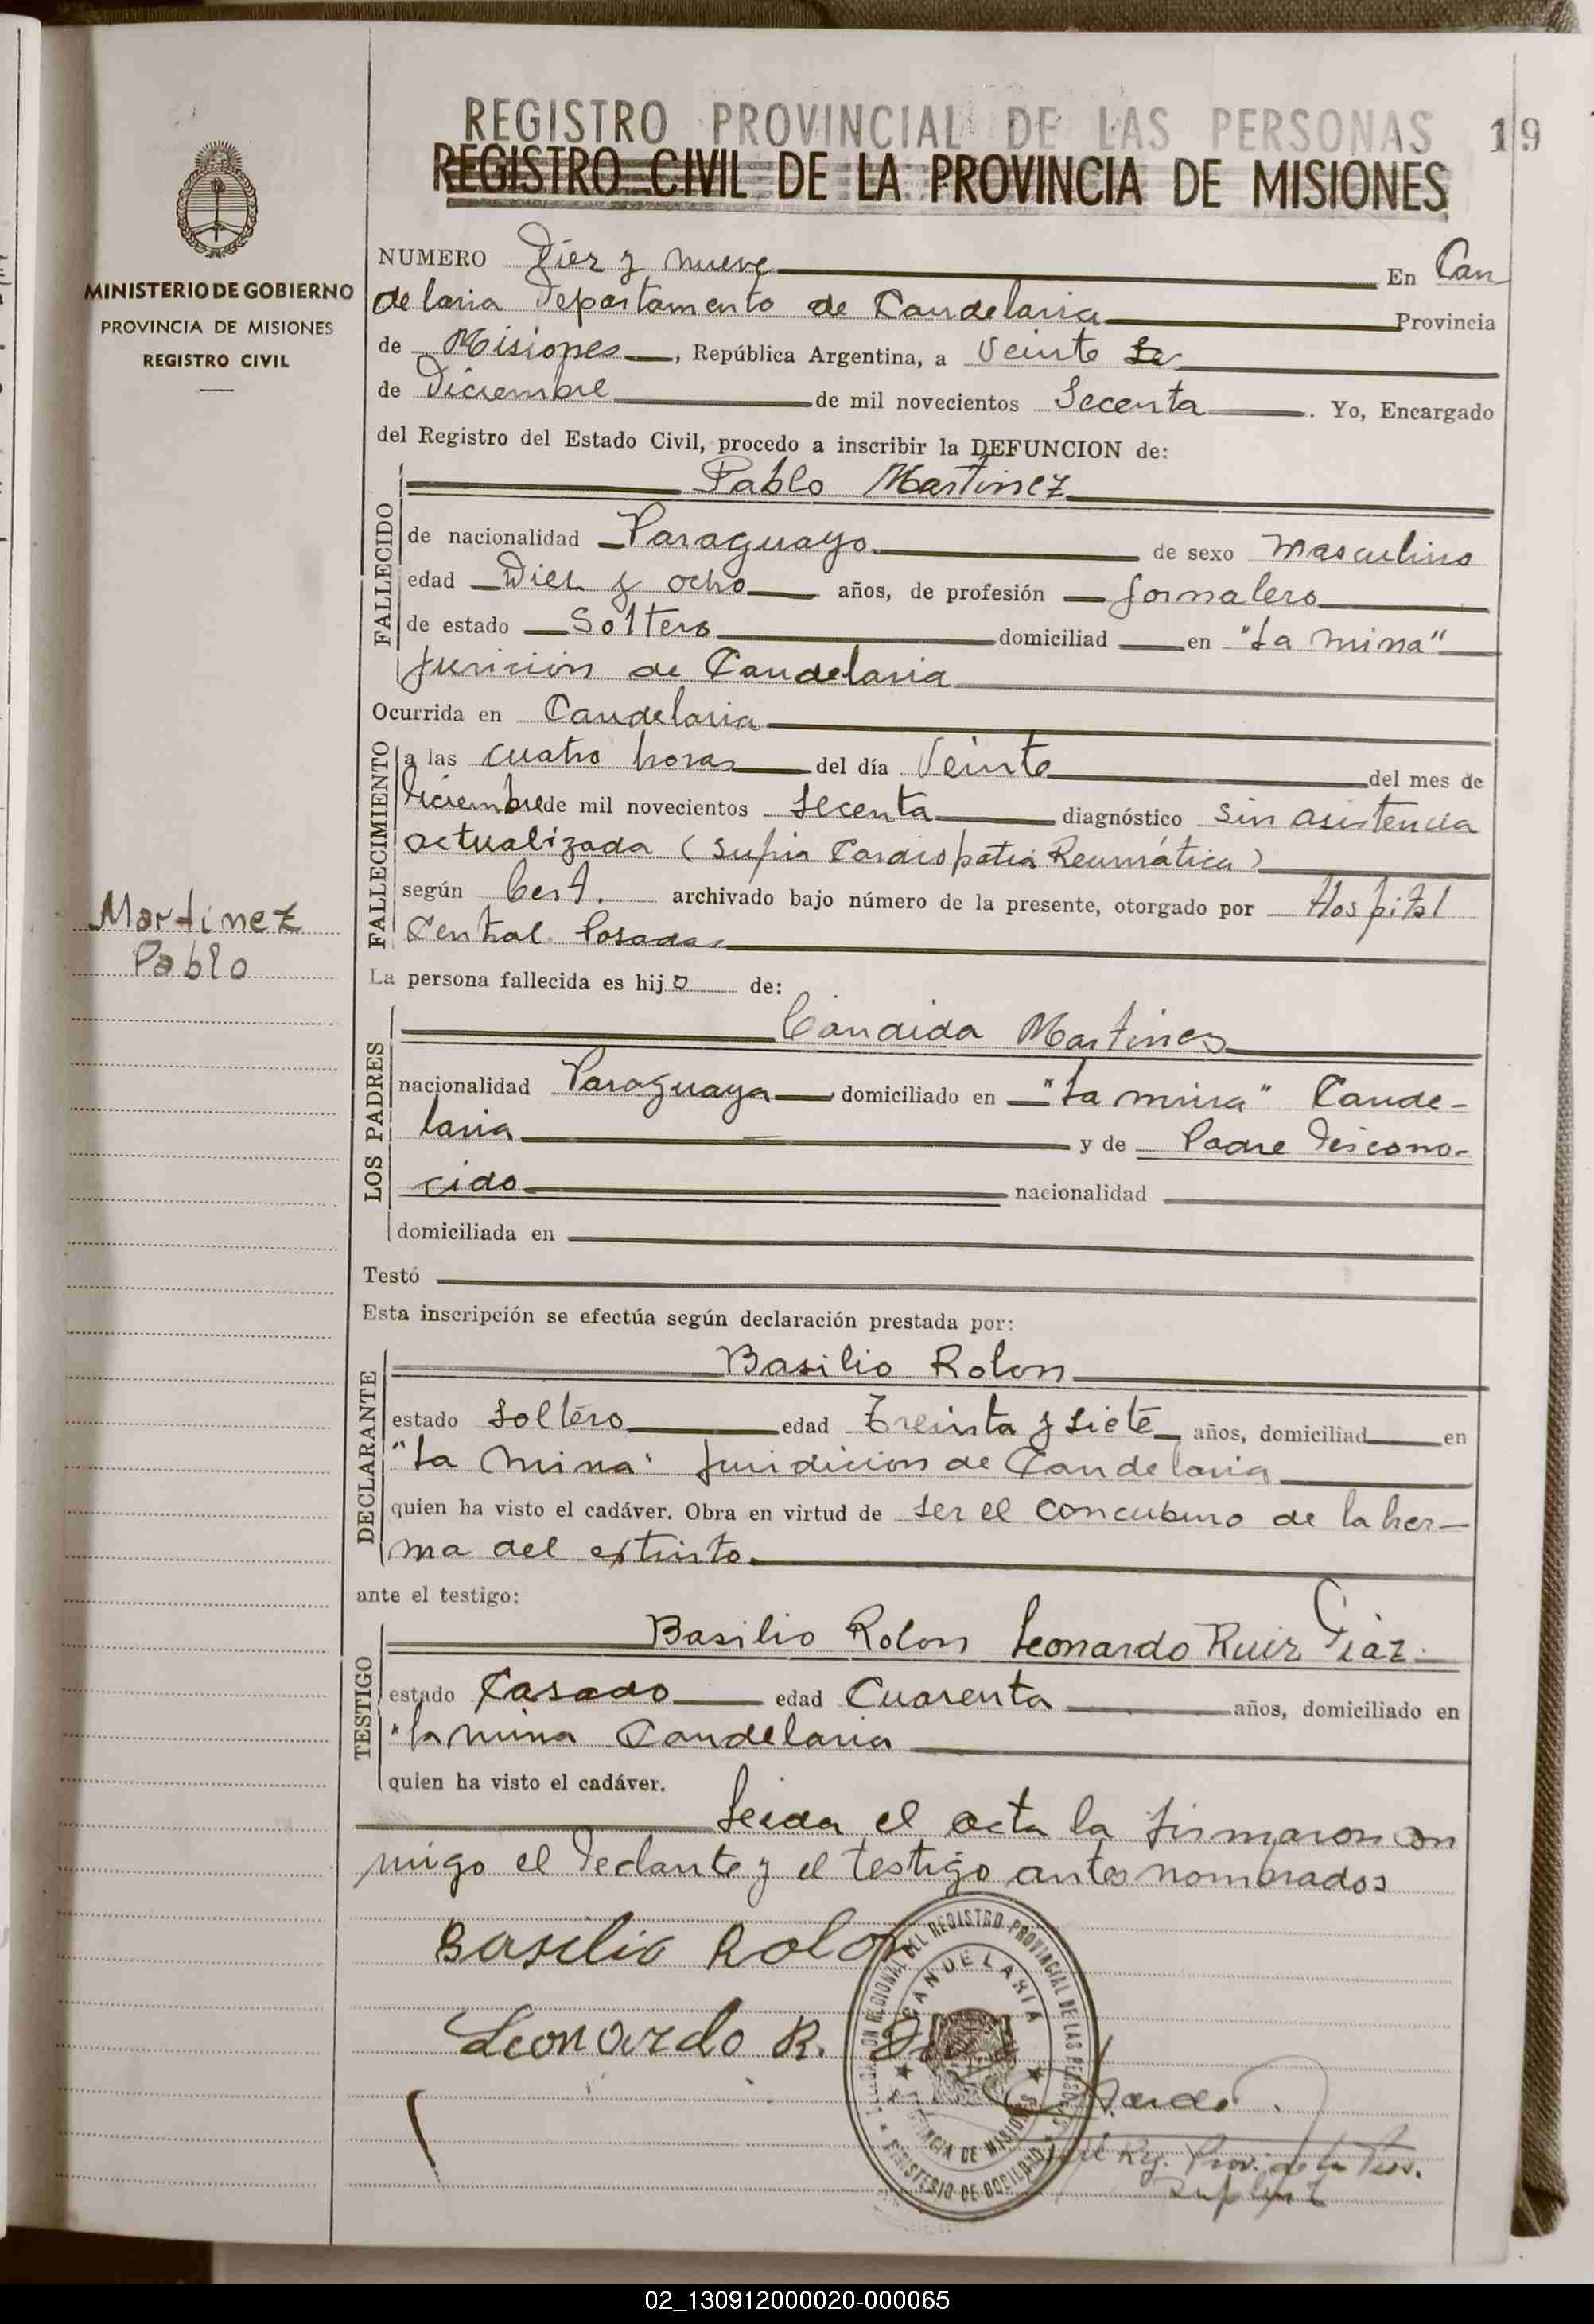 REGISTRO PROVINCIAL DE LAS PERSONAS 19
REGISTRO CIVIL DE LA PROVINCIA DE MISIONES
MINISTERIO DE GOBIERNO
PROVINCIA DE MISIONES
REGISTRO CIVIL
NUMERO Diez y nueve En Can
delaria Departamento de Candelaria Provincia
de Misiones, República Argentina, a Veinte
de Diciembre de mil novecientos Secenta. Yo, Encargado
del Registro del Estado Civil, procedo a inscribir la DEFUNCION de:
Pablo Martinez
FALLECIDO
de nacionalidad Paraguayo de sexo masculino
edad Diez y ocho años, de profesión Jornalero
de estado Soltero domiciliad en "La mina"
de Candelaria
Ocurrida en Candelaria
FALLECIMIENTO
a las cuatro horas del día Veinte del mes de
Diciembre de mil novecientos Secenta diagnóstico Sin asistencia
actualizada (Sufria Cardiopatia Reumática)
según Cert. archivado bajo número de la presente, otorgado por Hospital
Central Posadas
Martinez
Pablo
La persona fallecida es hijo de:
LOS PADRES
Candida Martines
nacionalidad Paraguaya domiciliado en "La mina" Cande-
laria y de Padre Descono-
cido nacionalidad
domiciliada en
Testó
Esta inscripción se efectúa según declaración prestada por:
DECLARANTE
Basilio Rolon
estado Soltero edad Treinta y siete años, domiciliad en
"La mina" Juridicion de Candelaria
quien ha visto el cadáver. Obra en virtud de ser el concubino de la her-
ma del extinto.
ante el testigo:
TESTIGO
Basilio Rolon Leonardo Ruiz Diaz
estado Casado edad Cuarenta años, domiciliado en
"La mina Candelaria
quien ha visto el cadáver.
Leida el acta la firmaron con
migo el Declante y el testigo antes nombrados
Basilio Rolon
Leonardo R.
DELEGACION REGIONAL DEL REGISTRO PROVINCIAL DE LAS PERSONAS
CANDELARIA
PROVINCIA DE MISIONES
MINISTERIO DE GOBIERNO
Reg. Prov. de las Pers.
02_130912000020-000065